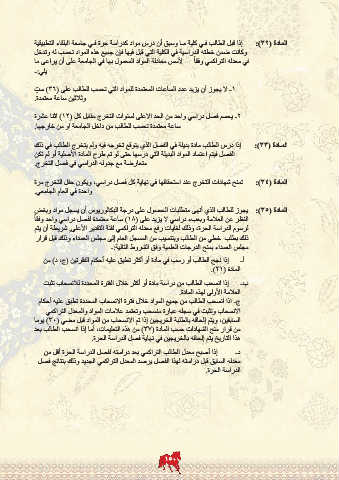 المادة (٣٢): إذا قبل الطالب في كلية ما وسبق أن درس مواد كدراسة حرة في جامعة البلقاء التطبيقية
وكانت ضمن خطته الدراسية في الكلية التي قبل فيها فإن جميع هذه المواد تحسب له وتدخل
في معدله التراكمي وفقاً لأسس معادلة المواد المعمول بها في الجامعة على أن يراعى ما
يلي:-
١- لا يجوز أن يزيد عدد الساعات المعتمدة للمواد التي تحسب للطالب على (٣٦) ست
وثلاثين ساعة معتمدة.
٢- يحسم فصل دراسي واحد من الحد الأعلى لسنوات التخرج مقابل كل (١٢) اثنتا عشرة
ساعة معتمدة تحسب للطالب من داخل الجامعة أو من خارجها.
المادة (٣٣): إذا درس الطالب مادة بديلة في الفصل الذي يتوقع تخرجه فيه ولم يتخرج الطالب في ذلك
الفصل فيتم اعتماد المواد البديلة التي درسها حتى لو تم طرح المادة الأصلية أو لم تكن
متعارضة مع جدوله الدراسي في فصل التخرج.
المادة (٣٤): تمنح شهادات التخرج عند استحقاقها في نهاية كل فصل دراسي، ويكون حفل التخرج مرة
واحدة في العام الجامعي.
المادة (٣٥): يجوز للطالب الذي أنهى متطلبات الحصول على درجة البكالوريوس أن يسجل مواد وبغض
النظر عن العلامة وبعبء دراسي لا يزيد على (١٨) ساعة معتمدة لفصل دراسي واحد وفقاً
لرسوم الدراسة الحرة، وذلك لغايات رفع معدله التراكمي لفئة التقدير الأعلى، شريطة أن يتم
ذلك بطلب خطي من الطالب وبتنسيب من المسجل العام إلى مجلس العمداء وذلك قبل قرار
مجلس العمداء بمنح الدرجات العلمية وفق الشروط التالية:-
أ- إذا نجح الطالب أو رسب في مادة أو أكثر تطبق عليه أحكام الفقرتين (ج، د) من
المادة (٢١).
ب- إذا انسحب الطالب من دراسة مادة أو أكثر خلال الفترة المحددة للانسحاب تثبت
العلامة الأولى لهذه المادة.
ج- إذا انسحب الطالب من جميع المواد خلال فترة الانسحاب المحددة تطبق عليه أحكام
الانسحاب وتثبت في سجله عبارة منسحب وتعتمد علامات المواد والمعدل التراكمي
السابقين، ويتم إلحاقه بالطلبة الخريجين إذا تم الانسحاب من المواد قبل مضي (٣٠) يوماً
من قرار منح الشهادات حسب المادة (٣٧) من هذه التعليمات، أما إذا انسحب الطالب بعد
هذا التاريخ يتم إلحاقه بالخريجين في نهاية فصل الدراسة الحرة.
د- إذا أصبح معدل الطالب التراكمي بعد دراسته لفصل الدراسة الحرة أقل من
معدله السابق قبل دراسته لهذا الفصل يرصد المعدل التراكمي الجديد وذلك بنتائج فصل
الدراسة الحرة.